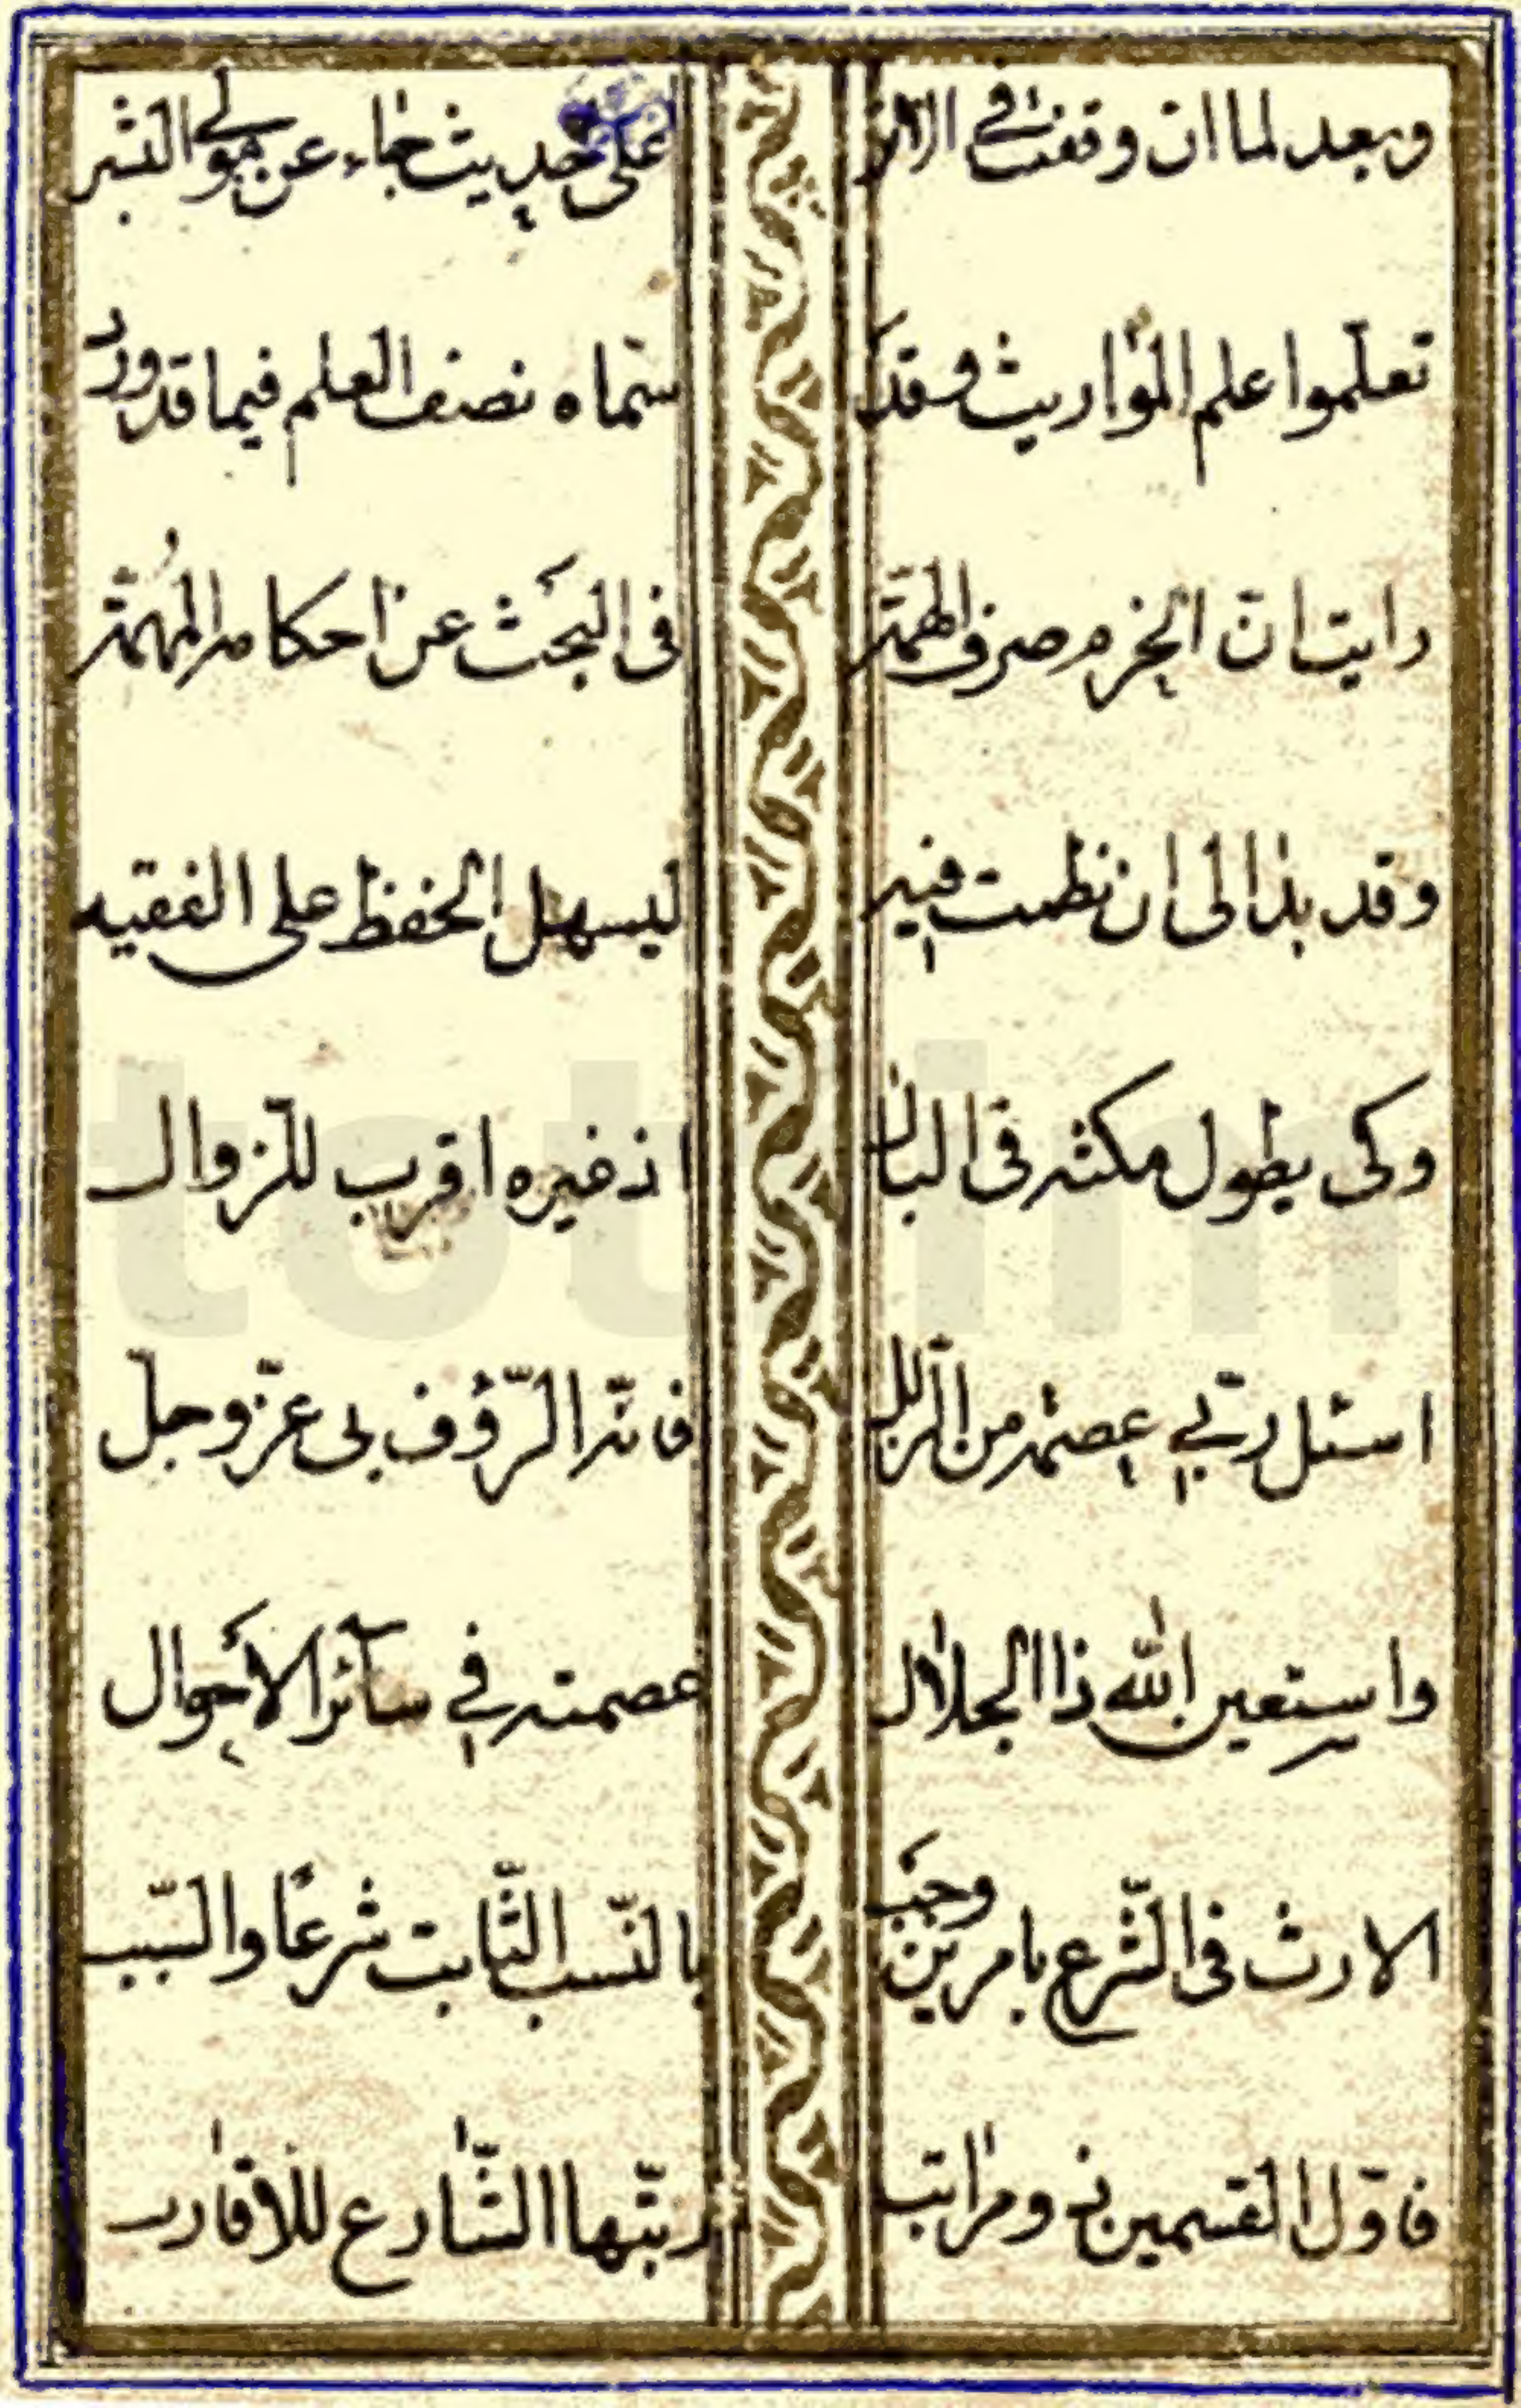 وبعد لما ان وقفت في الاثر على حديث جاء عن مولى البشر
تعلّموا علم المواريث وقد سمّاه نصف العلم فيما قد ورد
رايت انّ الحزم صرف الهمّة في البحث عن احكامه المهمّة
وقد بدا لى ان نظمت فيه ليسهل الحفظ على الفقيه
وكى يطول مكثه في البال اذ غيره اقرب للزوال
اسئل ربّي عصمة من الزلل فانّه الرّؤف بى عزّ وجل
واستعين الله ذا الجلال عصمته في سآئر الأحوال
الارث فى الشّرع بامرين وجب بالنّسب الثّابت شرعًا والسّبب
فاوّل القسمين ذو مراتب رتّبها الشّارع للاقارب
totim